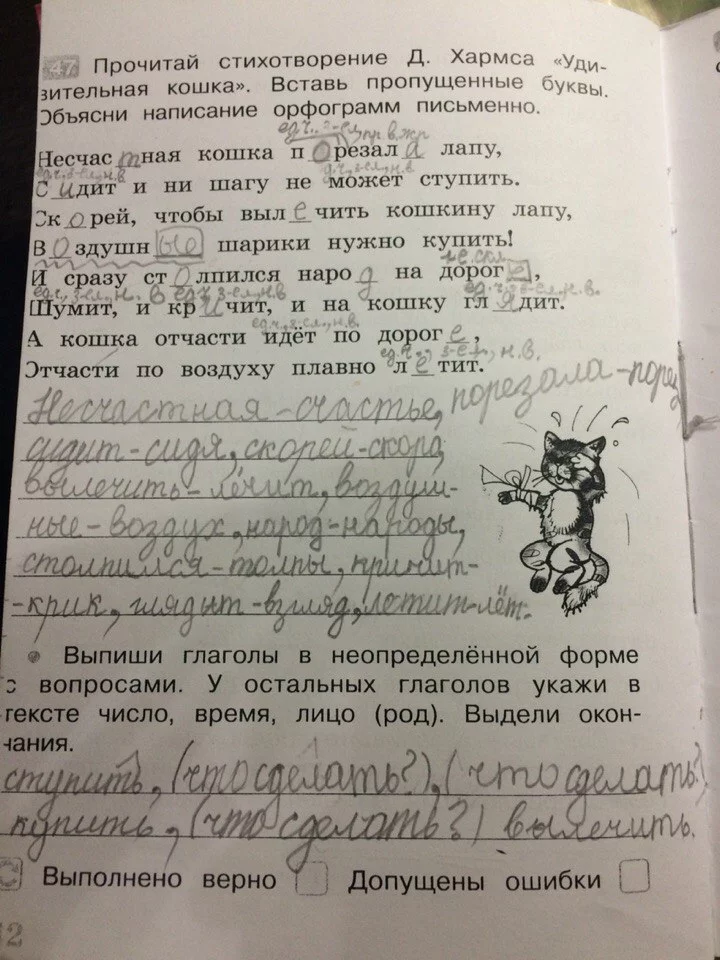 47 Прочитай стихотворение Д. Хармса «Уди-
вительная кошка». Вставь пропущенные буквы.
Объясни написание орфограмм письменно.
ед.ч., 3-е л., пр.в. ж.р.
Несчастная кошка порезала лапу,
ед.ч., 3-е л., н.в. ед.ч., 3-е л., н.в.
Сидит и ни шагу не может ступить.
Скорей, чтобы вылечить кошкину лапу,
Воздушные шарики нужно купить!
1-е скл.
И сразу столпился народ на дороге,
ед.ч., 3-е л., н.в. ед.ч. 3-е л., н.в. ед.ч., 3-е л., н.в.
Шумит, и кричит, и на кошку глядит.
ед.ч., 3-е л., н.в.
А кошка отчасти идёт по дороге,
ед.ч., 3-е л., н.в.
Отчасти по воздуху плавно летит.
Несчастная - счастье, порезала - порез
сидит - сидя, скорей - скоро,
вылечить - лечит, воздуш-
ные - воздух, народ - народы,
столпился - толпы, кричит -
- крик, глядыт - взгляд, летит - лёт.
Выпиши глаголы в неопределённой форме
с вопросами. У остальных глаголов укажи в
тексте число, время, лицо (род). Выдели окон-
чания.
ступить, (что сделать?), (что сделать?)
купить, (что сделать?) вылечить.
Выполнено верно Допущены ошибки
12